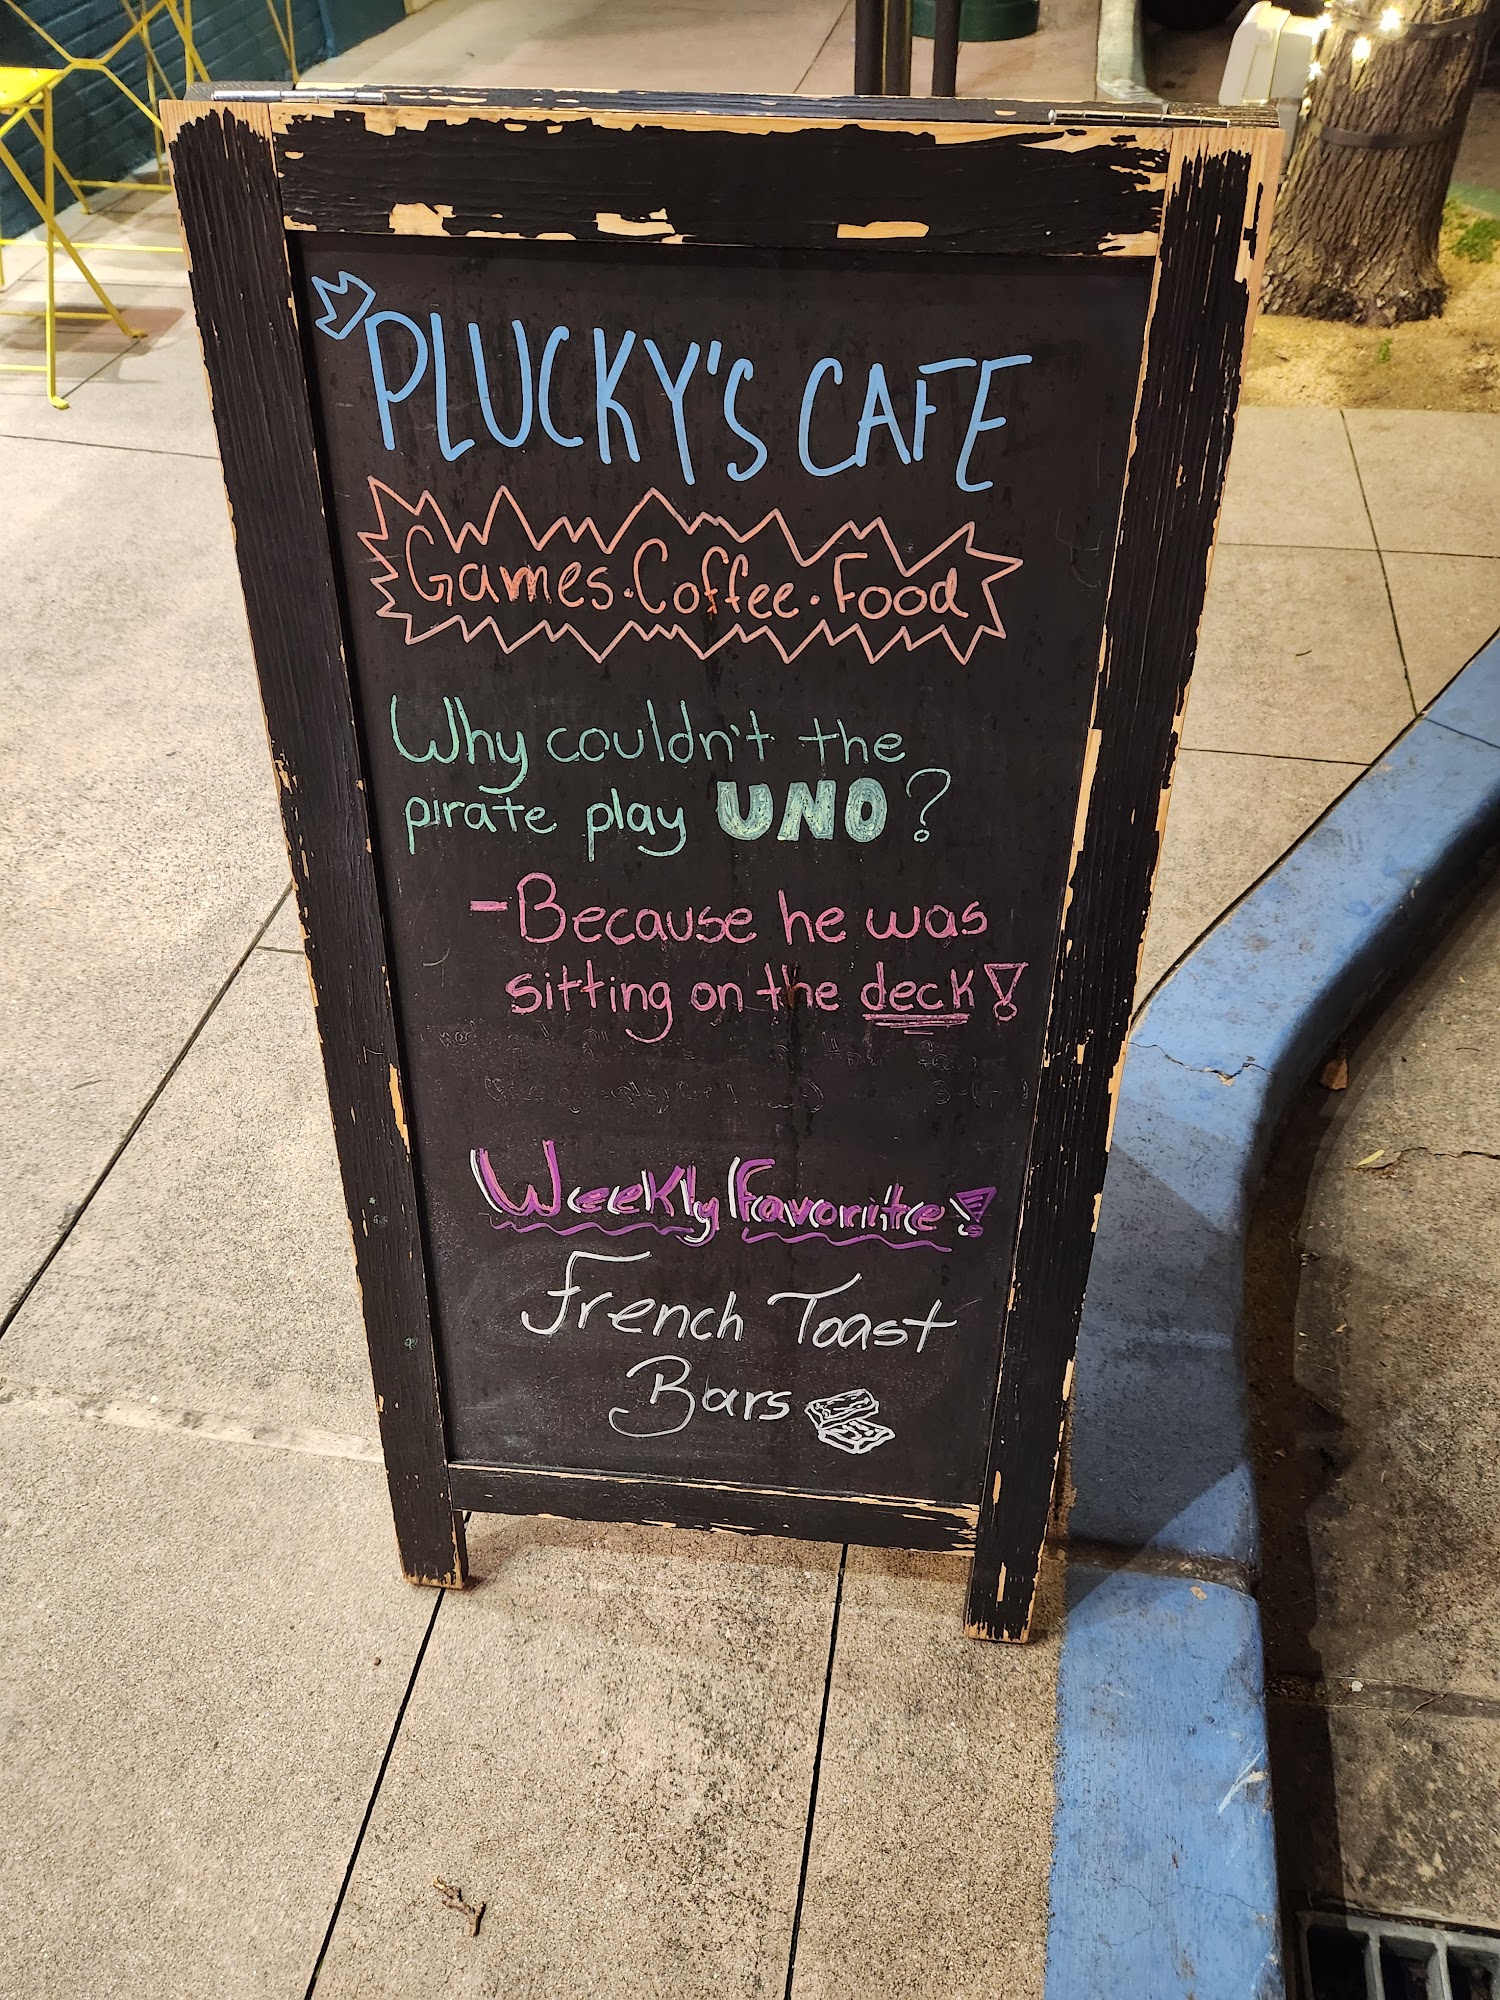 PLUCKY'S CAFE
Games·Coffee·Food
Why couldn't the
pirate play UNO?
-Because he was
sitting on the deck!
Weekly Favorite!
French Toast
Bars